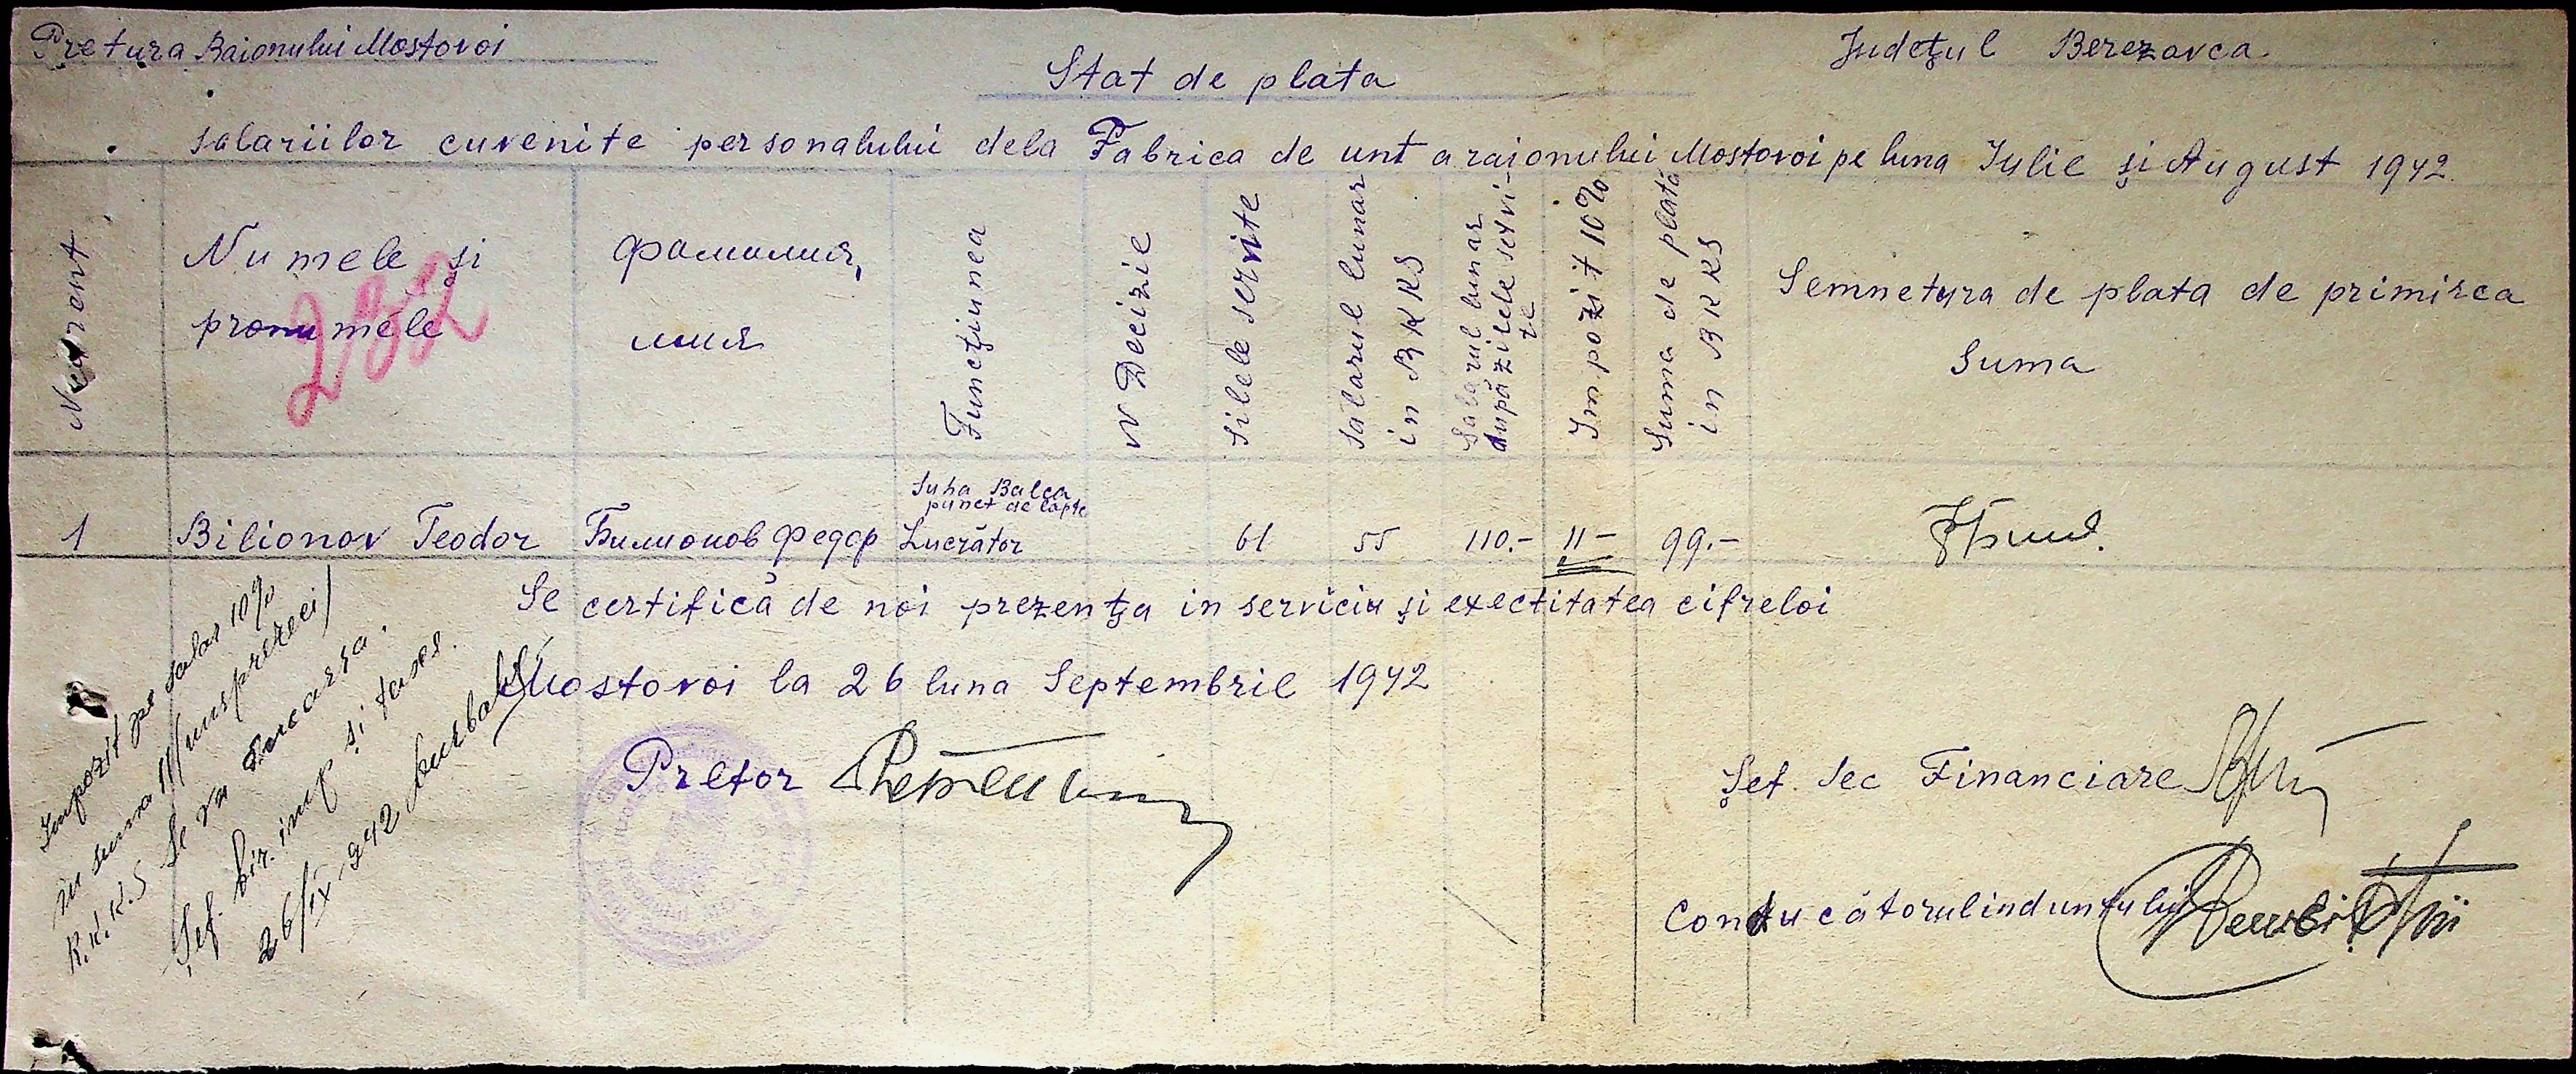 Pretura Raionului Mostovoi
Județul Berezovca
Stat de plata
salariilor cuvenite personalului dela Fabrica de unt a raionului Mostovoi pe luna Iulie și August 1942
N curent
Numele și
pronumele
282
Фамилия,
имя
Funcțiunea
N Decizie
silele servite
Salarul lunar
in RKKS
Salarul lunar
după zilele servi-
te
Impozit 10%
Suma de plată
in RKKS
Semnetura de plata de primirea
suma
Suha Balca
punct de lapte
1 Bilionov Teodor Билионов Федор Lucrător 61 55 110.- 11- 99.-
Se certifică de noi prezența in serviciu și exectitatea cifreloi
Mostovoi la 26 luna Septembrie 1942
Pretor
Șef sec Financiare
Conducătorul
Impozit pe salar 10%
in suma 11/unsprezeci/
R.K.K.S se va
Șef. bir. imp și taxe.
26/IX 942